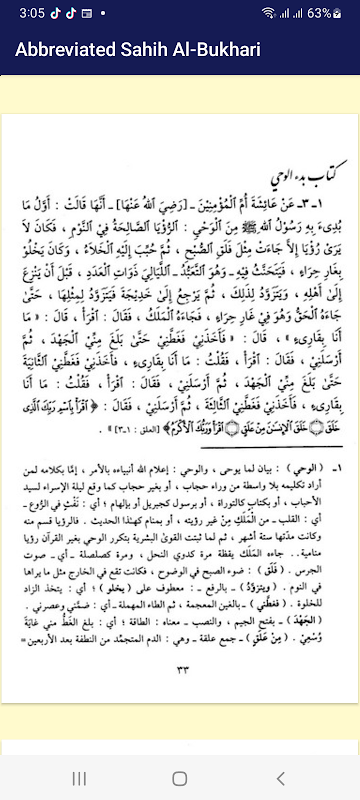 3:05
63%
Abbreviated Sahih Al-Bukhari
كتاب بدء الوحي
١ـ ٣ـ عَنْ عَائِشَةَ أُمِّ الْمُؤْمِنِينَ ـ [رَضِيَ اللهُ عَنْهَا] ـ أَنَّهَا قَالَتْ : أَوَّلُ مَا
بُدِىءَ بِهِ رَسُولُ اللهِ ﷺ مِنَ الْوَحْيِ : الرُّؤْيَا الصَّالِحَةُ فِي النَّوْمِ ، فَكَانَ لاَ
يَرَىٰ رُؤْيَا إِلاَّ جَاءَتْ مِثْلَ فَلَقِ الصُّبْحِ ، ثُمَّ حُبِّبَ إِلَيْهِ الْخَلاَءُ ، وَكَانَ يَخْلُو
بِغَارِ حِرَاءٍ ، فَيَتَحَنَّثُ فِيْهِ ـ وَهُوَ التَّعَبُّدُ ـ اللَّيَالِيَ ذَوَاتِ الْعَدَدِ ، قَبْلَ أَنْ يَنْزِعَ
إِلَىٰ أَهْلِهِ ، وَيَتَزَوَّدُ لِذَلِكَ ، ثُمَّ يَرْجِعُ إِلَىٰ خَدِيْجَةَ فَيَتَزَوَّدُ لِمِثْلِهَا ، حَتَّىٰ
جَاءَهُ الْحَقُّ وَهُوَ فِيْ غَارِ حِرَاءٍ ، فَجَاءَهُ الْمَلَكُ ، فَقَالَ : اقْرَأْ ، قَالَ : « مَا
أَنَا بِقَارِىءٍ » ، قَالَ : « فَأَخَذَنِيْ فَغَطَّنِيْ حَتَّىٰ بَلَغَ مِنِّيَ الْجَهْدَ ، ثُمَّ
أَرْسَلَنِيْ ، فَقَالَ : اقْرَأْ ، فَقُلْتُ : مَا أَنَا بِقَارِىءٍ ، فَأَخَذَنِيْ فَغَطَّنِيْ الثَّانِيَةَ
حَتَّىٰ بَلَغَ مِنِّيَ الْجَهْدَ ، ثُمَّ أَرْسَلَنِيْ ، فَقَالَ : اقْرَأْ ، فَقُلْتُ : مَا أَنَا
بِقَارِىءٍ ، فَأَخَذَنِيْ فَغَطَّنِيْ الثَّالِثَةَ ، ثُمَّ أَرْسَلَنِيْ ، فَقَالَ : ﴿ اقْرَأْ بِاسْمِ رَبِّكَ الَّذِي
خَلَقَ ۝ خَلَقَ الْإِنسَٰنَ مِنْ عَلَقٍ ۝ اقْرَأْ وَرَبُّكَ الْأَكْرَمُ﴾ [العلق : ١ـ٣] » .
١ـ ( الوحي ) : بيان لما يوحى ، والوحي : إعلام الله أنبياءه بالأمر ، إمّا بكلامه لمن
أراد تكليمه بلا واسطة من وراء حجاب ، أو بغير حجاب كما وقع ليلة الإسراء لسيد
الأحباب ، أو بكتاب كالتوراة ، أو برسول كجبريل أو بإلهام ؛ أي : نَفْثٍ في الرُّوع ـ
أي : القلب ـ من الْمَلَكِ مِنْ غير رؤيته ، أو بمنام كهذا الحديث . فالرؤيا قسم منه
وكانت مدّتها ستة أشهر ، ثم لما ثبتت القوىٰ البشرية بتكرر الوحي بغير القرآن رؤيا
منامية.. جاءه الملَك يقظة مرة كدوي النحل ، ومرة كصلصلة ـ أي ـ صوت
الجرس . ( فَلَق ) : ضوء الصبح في الوضوح ، فكانت تقع في الخارج مثل ما يراها
في النوم . ( ويتزوَّدُ ) ـ بالرفع ـ : معطوف على ( يخلو ) ؛ أي : يتخذ الزاد
للخلوة . ( فغطَّني ) ـ بالغين المعجمة ، ثم الطاء المهملة ـ أي : ضمَّني وعصرني .
( الجَهْدَ ) ـ بفتح الجيم ، والنصب ـ معناه : الطاقة ؛ أي : بلغ الغَطُّ مني غايَةَ
وُسْعِيْ . ( مِنْ عَلَقٍ ) ـ جمع علقة ـ وهي : الدم المتجمِّد من النطفة بعد الأربعين=
٣٣